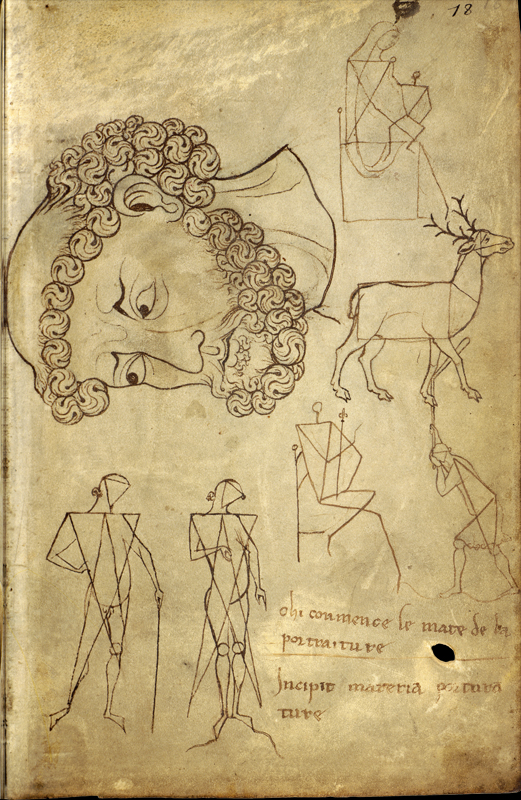 18
chi commence le mate de la
portraiture
Incipit materia
ture